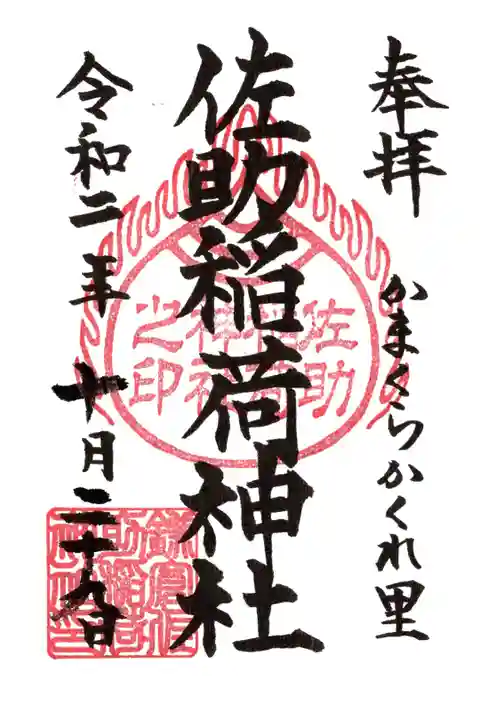 奉拝
かまくらかくれ里
佐助稲荷神社
佐助稲荷神社之印
令和二年十月二十九日